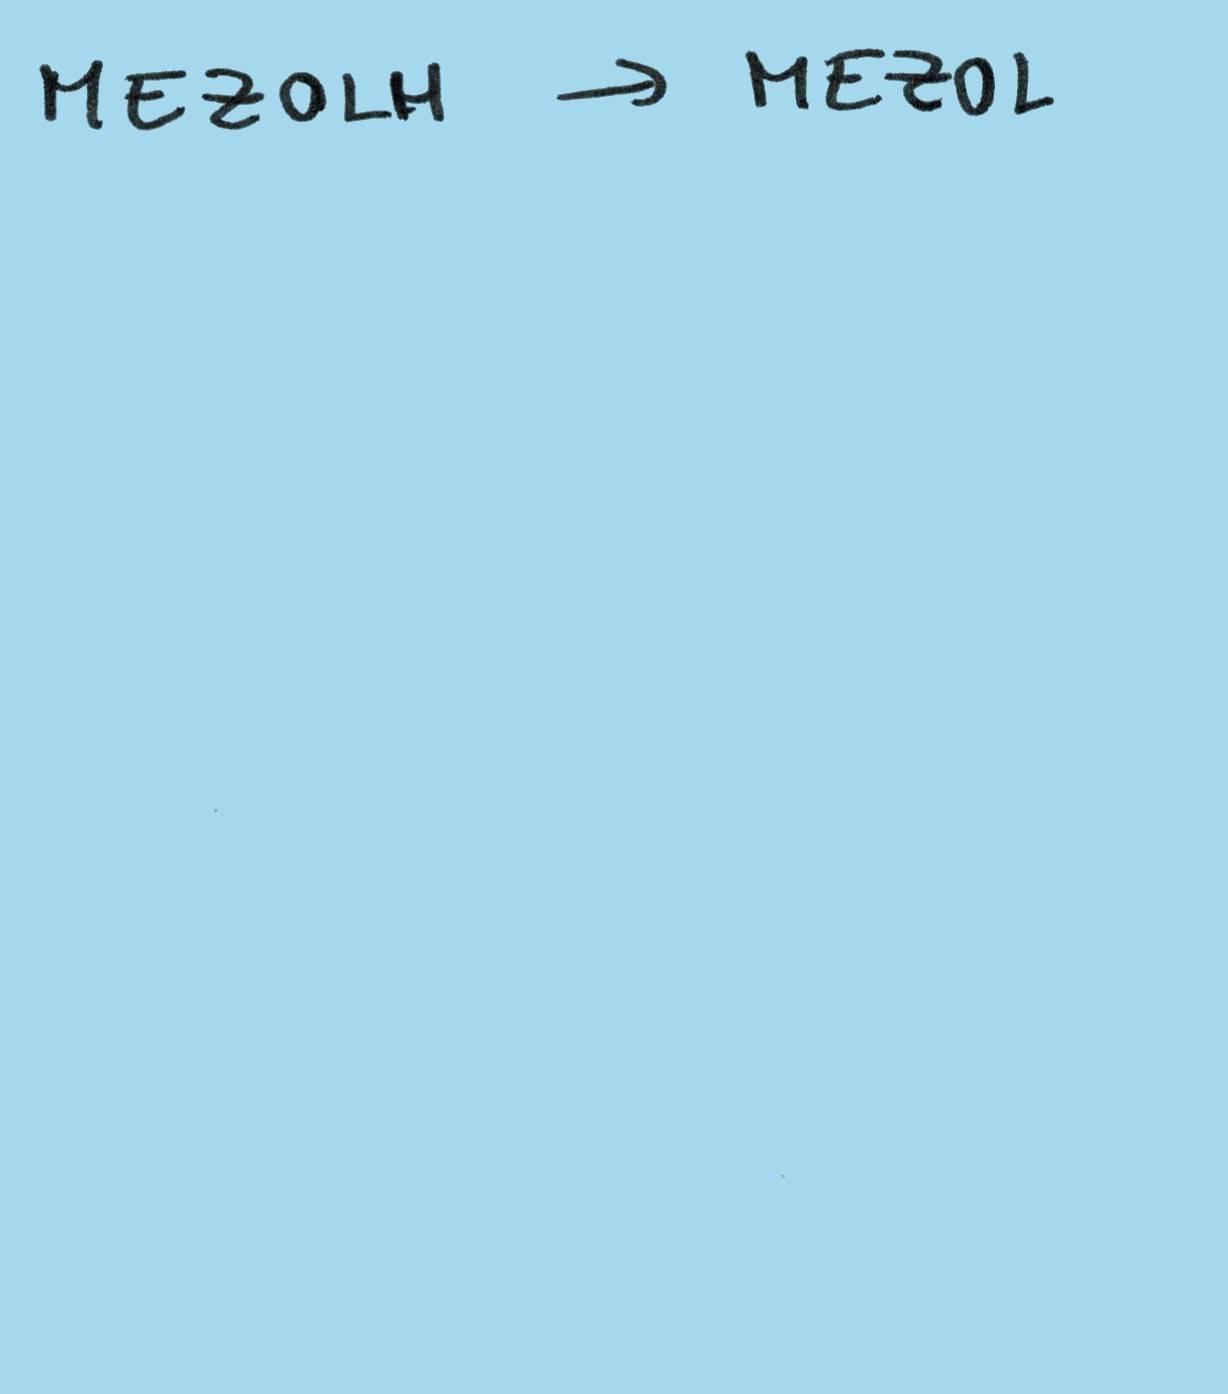 MEZOLH → MEZOL